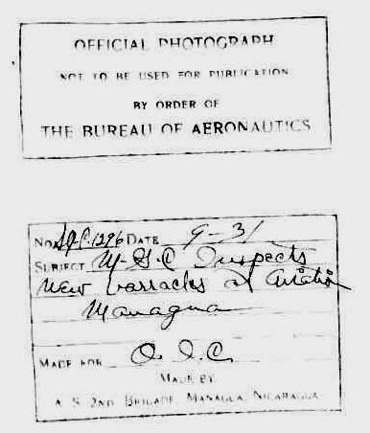 OFFICIAL PHOTOGRAPH
NOT TO BE USED FOR PUBLICATION
BY ORDER OF
THE BUREAU OF AERONAUTICS
No. 1296 DATE 9-31
SUBJECT M-G-C Inspects
New barracks at Aviation
Managua
MADE FOR O. I. C.
MADE BY
A. S. 2ND BRIGADE, MANAGUA, NICARAGUA